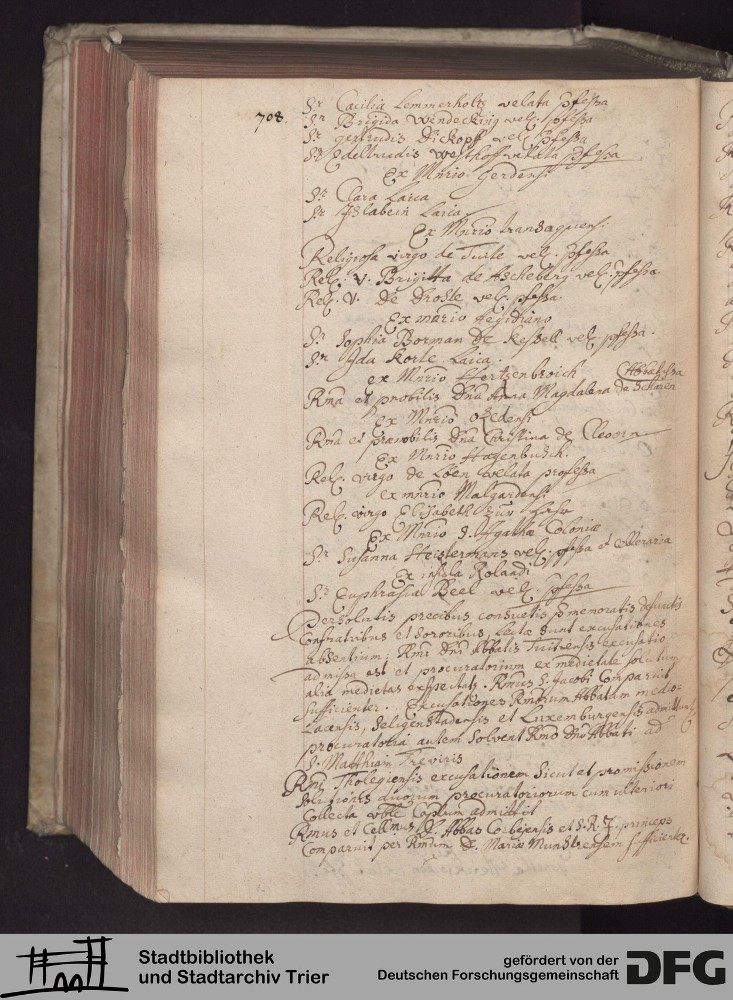 708.
Sr. Cæcilia Lemmerholtz velata pfessa
Sr. Brigida Wendecking vel. pfessa
Sr. gertrudis Dickopff vel. pfessa
Sr. Edeltrudis Westhoff velata pfessa
Ex Mnrio Gerdensi
Sr. Clara Laica
Sr. Islabein Laica
Ex Mnrio transaquensi
Religiosa virgo de Tuile vel. pfessa
Rel. V. Brigitta de Ascheberg vel. pfessa.
Rel. V. De Droste vel. pfessa.
Ex mnrio Aegidiano
Sr. Sophia Borman De Kessell vel. pfessa.
Sr. Ida Korte Laica.
ex Mnrio Hertzenbroich
Rma et pnobilis Dna Anna Magdalena de Scharen Abbatissa
Ex Mnrio Oedensi
Rma et prænobilis Dna Christina de Cleoorn
Ex Mnrio Hagenbusch.
Rel. virgo de Loen velata professa
ex mnrio Malgardensi
Rel. virgo Elisabeth zur
Ex Mnrio S. Agathæ Coloniæ
Sr. Susanna Heistermans vel. pfessa et Celleraria
Ex insula Rolandi
Sr. Euphrasia Beel vel. pfessa
Persolutis precibus consuetis pmemoratis defunctis
Confratribus et Sororibus, Lectæ sunt excusationes
absentium: Rmi Dni Abbatis Tuitiensis excusatio
admissa est et procuratorium ex medietate solutum
alia medietas exspectatr. Rmus S. Jacobi Comparuit
sufficienter. Excusationes Rmorum Abbatum medio-
Lacensis, Seligenstadensis et Luxemburgensis admittuntr
procuratoria autem solvent Rmo Dno Abbati ad
S. Matthiam Treviris
Rmi Tholegiensis excusationem sicut et promissionem
solutionis duorum procuratoriorum cum ulteriori
Collecta Caplum admittit
Rmus et Celsmus D. Abbas Corbejensis et S. R. J. princeps
Comparuit per Rmdum D. Mariæ Munstrensem sufficienter.
Stadtbibliothek
und Stadtarchiv Trier
gefördert von der
Deutschen Forschungsgemeinschaft
DFG